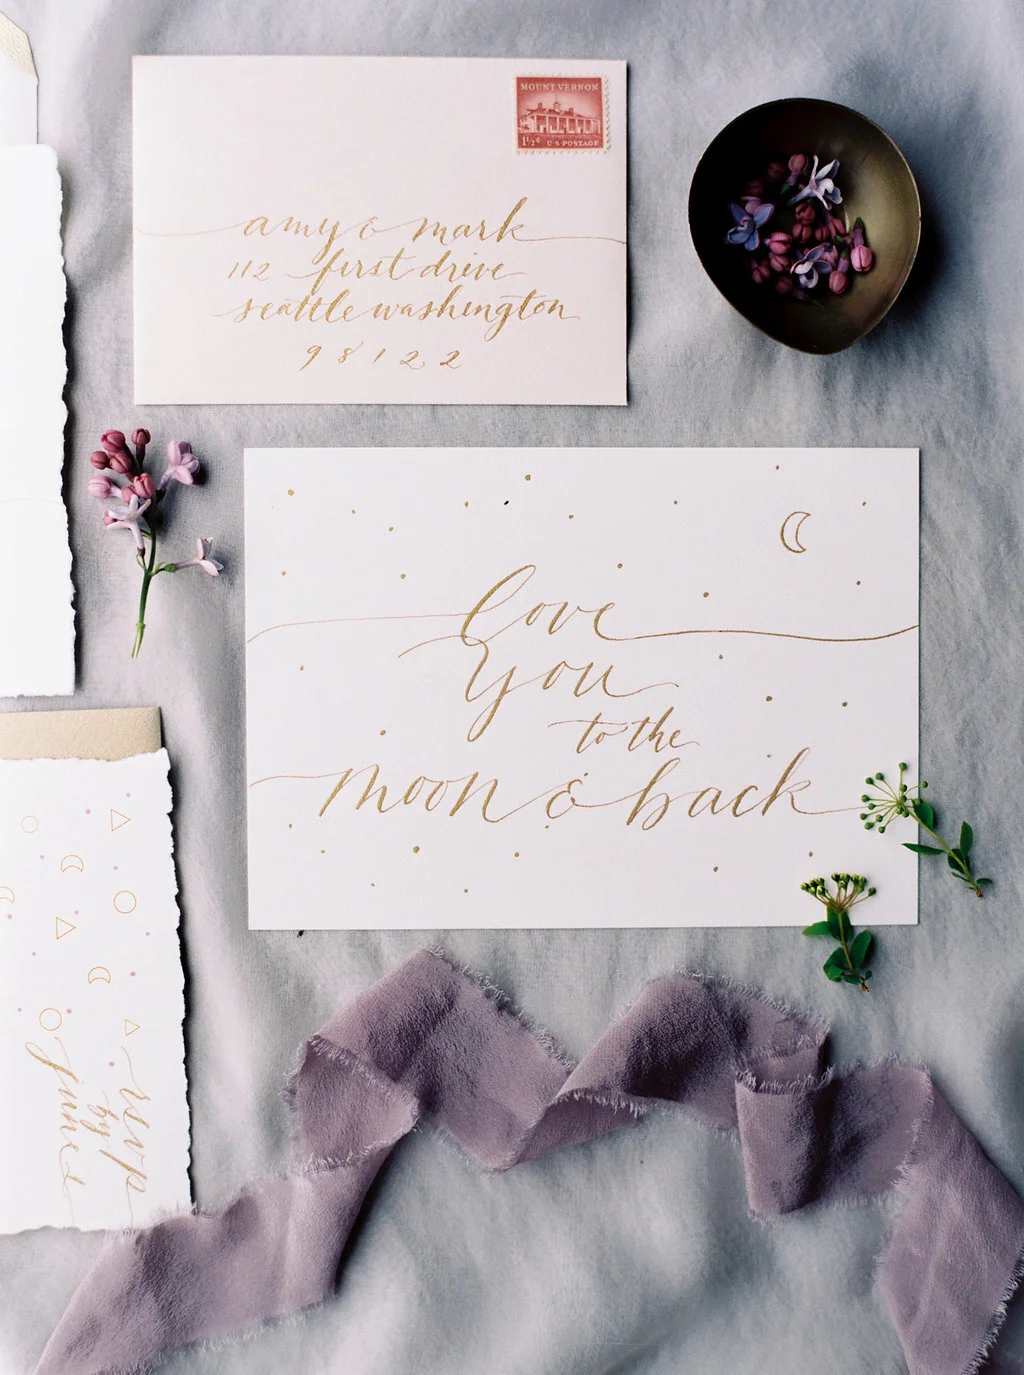 MOUNT VERNON
1½¢ U·S·POSTAGE
amy & mark
112 first drive
seattle washington
98122
love
you
to the
moon & back
rsvp
by
june